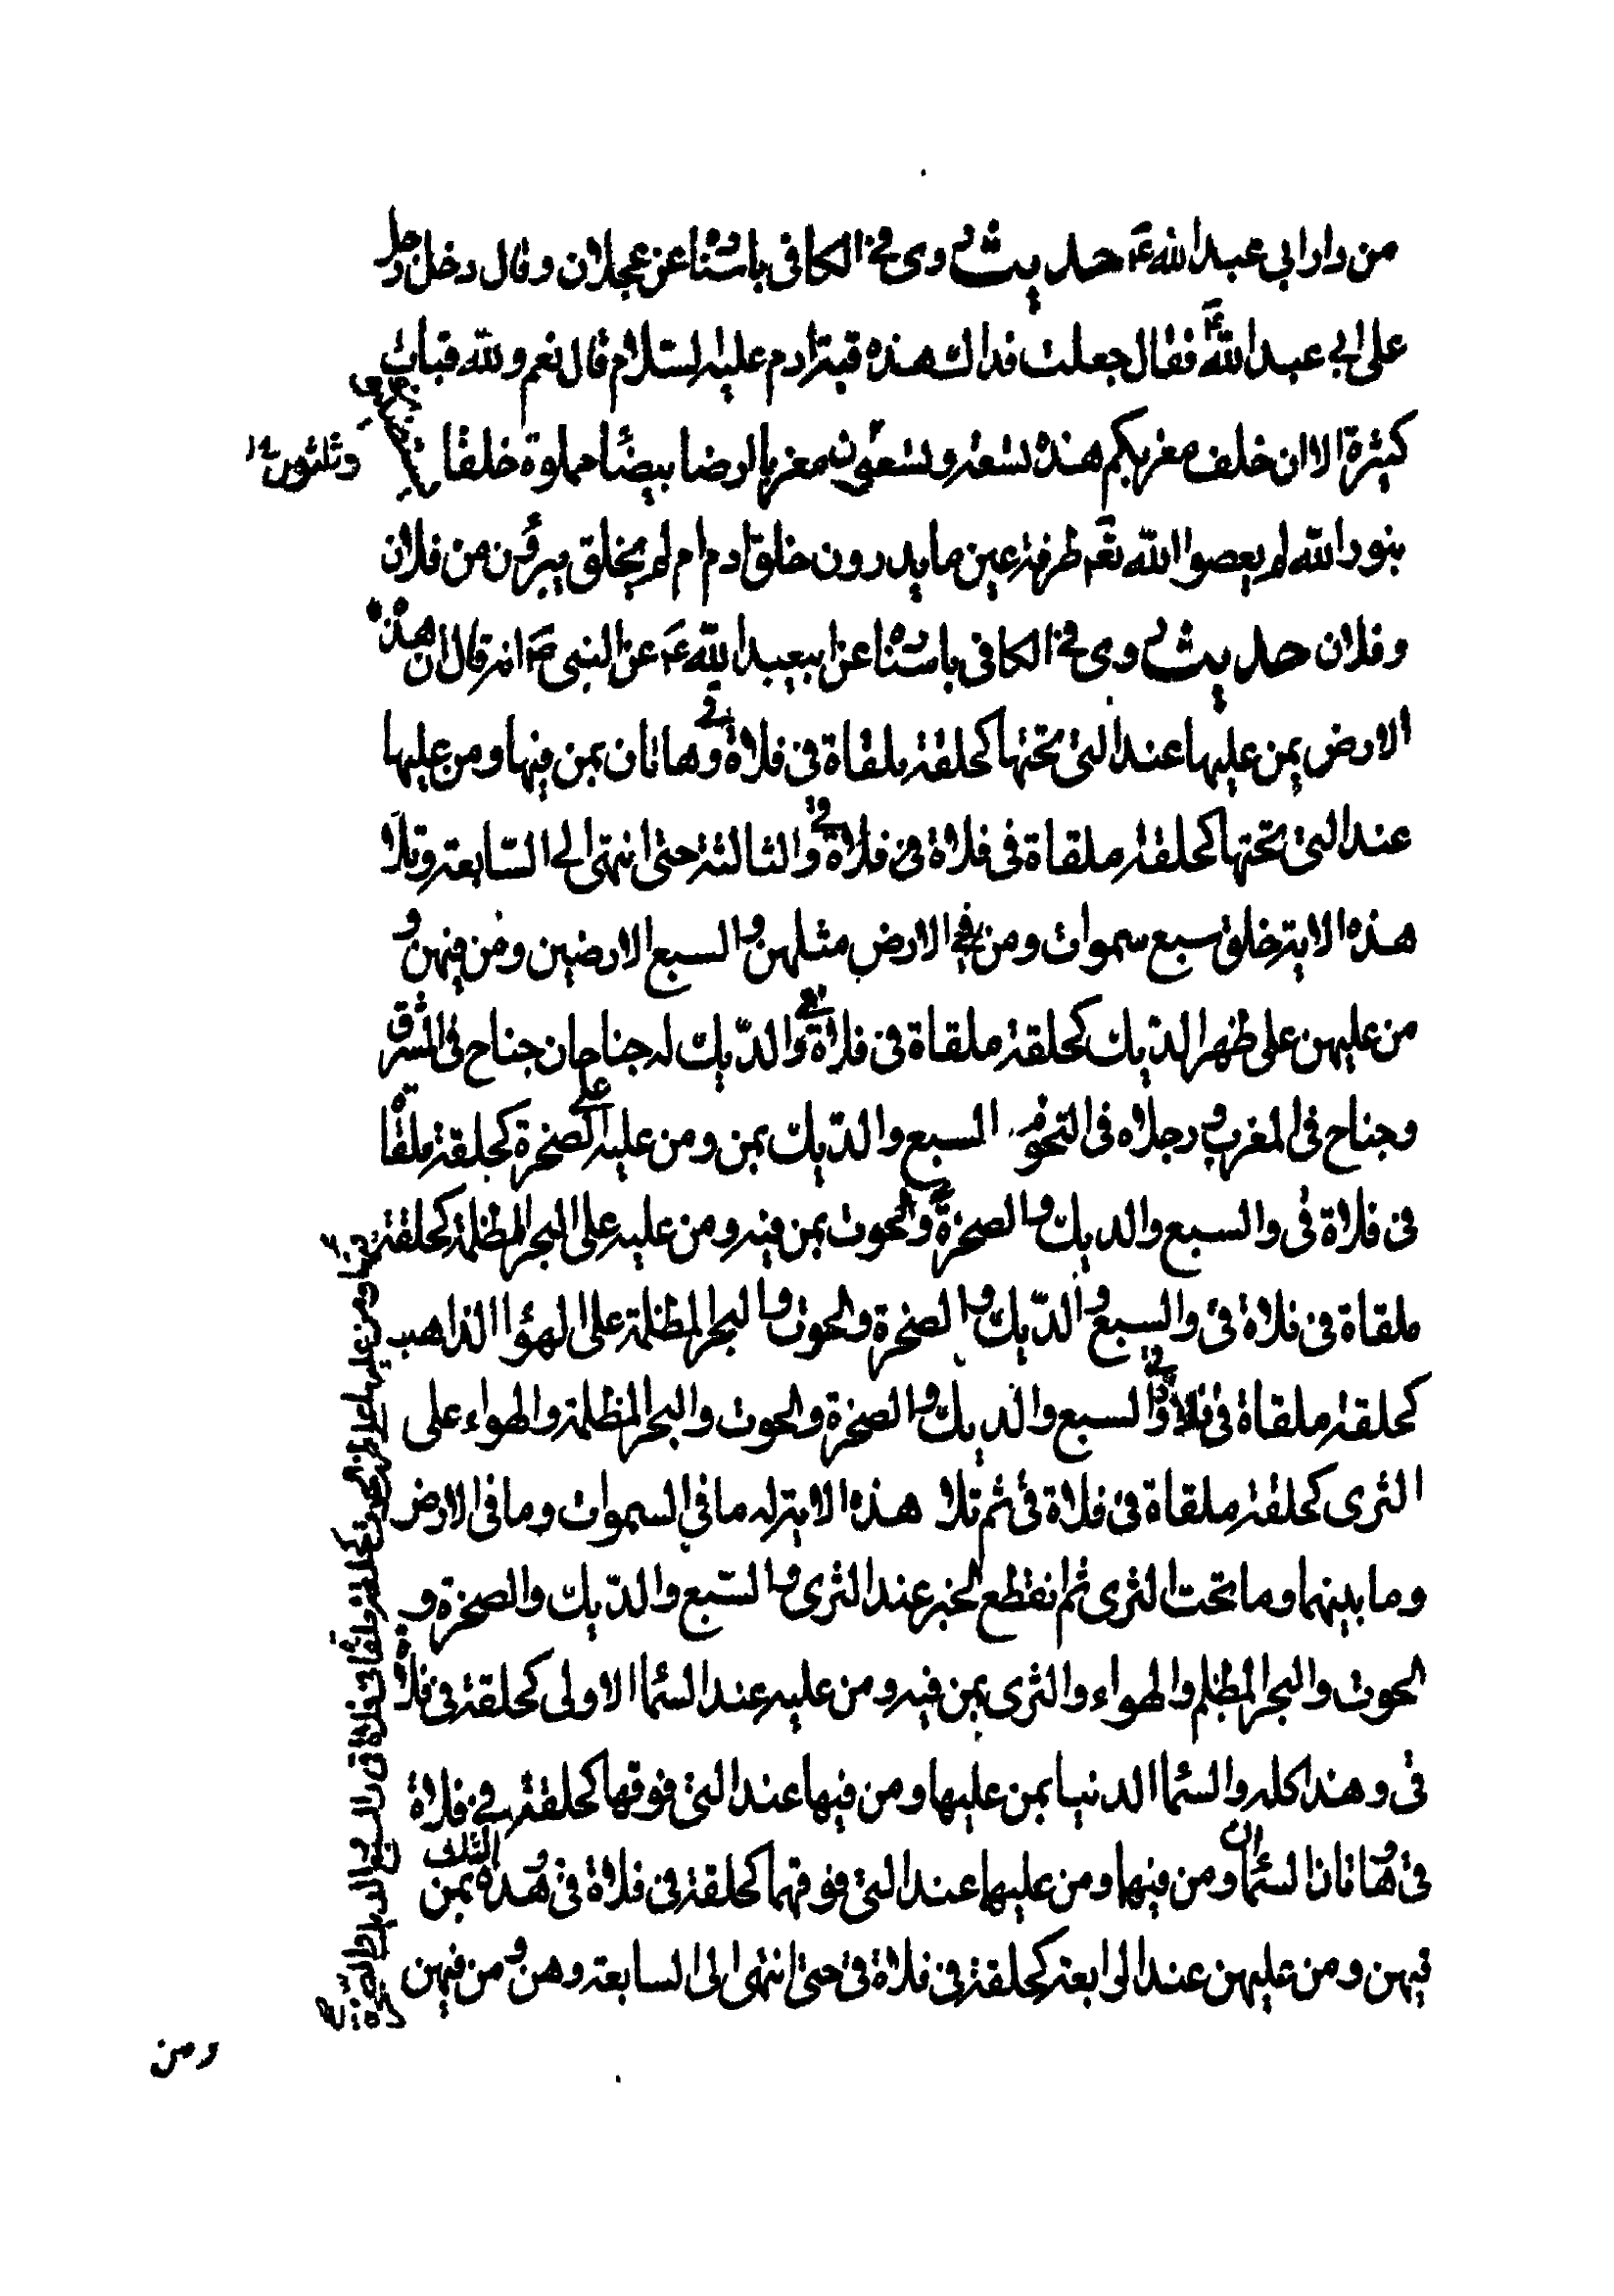 من دار ابي عبد الله ع حديث روى في الكافي باسناده عن عجلان وقال دخل رجل
على ابي عبد الله ع فقال جعلت فداك هذه قبة ادم عليه السلام قال نعم ولله قباب
كثيرة الا ان خلف مغربكم هذه تسعة وتسعون مغربا ارضا بيضا مملوة خلقا
وثلثون ١٢
بنور الله لم يعصوا الله تع طرفة عين ما يدرون خلق ادم ام لم يخلق يبرؤن من فلان
وفلان حديث روى في الكافي باسناده عن ابيعبد الله ع عن النبي ص انه قال ان هذه
الارض بمن عليها عند التي تحتها كحلقة ملقاة في فلاة في وهاتان بمن فيها ومن عليها
عند التي تحتها كحلقة ملقاة في فلاة في فلاة في والثالثة حتى انتهى الى السابعة وتلا
هذه الاية خلق سبع سموات ومن في الارض مثلهن والسبع الارضين ومن فيهن و
من عليهن على ظهر الديك كحلقة ملقاة في فلاة في والديك له جناحان جناح في المشرق
وجناح في المغرب ورجلاه في التخوم السبع والديك بمن ومن عليه على الصخرة كحلقة ملقاة
في فلاة في والسبع والديك والصخرة في والحوت بمن فيه ومن عليه على البحر المظلمة كحلقة
ملقاة في فلاة في والسبع والديك والصخرة والحوت والبحر المظلمة على الهوا الذاهب
كحلقة ملقاة في فلاة في والسبع والديك والصخرة والحوت والبحر المظلمة والهواء على
الثرى كحلقة ملقاة في فلاة في ثم تلا هذه الاية له ما في السموات وما في الارض
وما بينهما وما تحت الثرى ثم انقطع الخبر عند الثرى والسبع والديك والصخرة و
الحوت والبحر المظلم والهواء والثرى بمن فيه ومن عليه عند السما الاولى كحلقة في فلاة
في وهذا كله والسما الدنيا بمن عليها ومن فيها عند التي فوقها كحلقة في فلاة
في وهاتان السماان ومن فيهما ومن عليهما عند التي فوقهما كحلقة في فلاة في وهذه الثلث بمن
فيهن ومن عليهن عند الرابعة كحلقة في فلاة في حتى انتهى الى السابعة وهن ومن فيهن
ومن